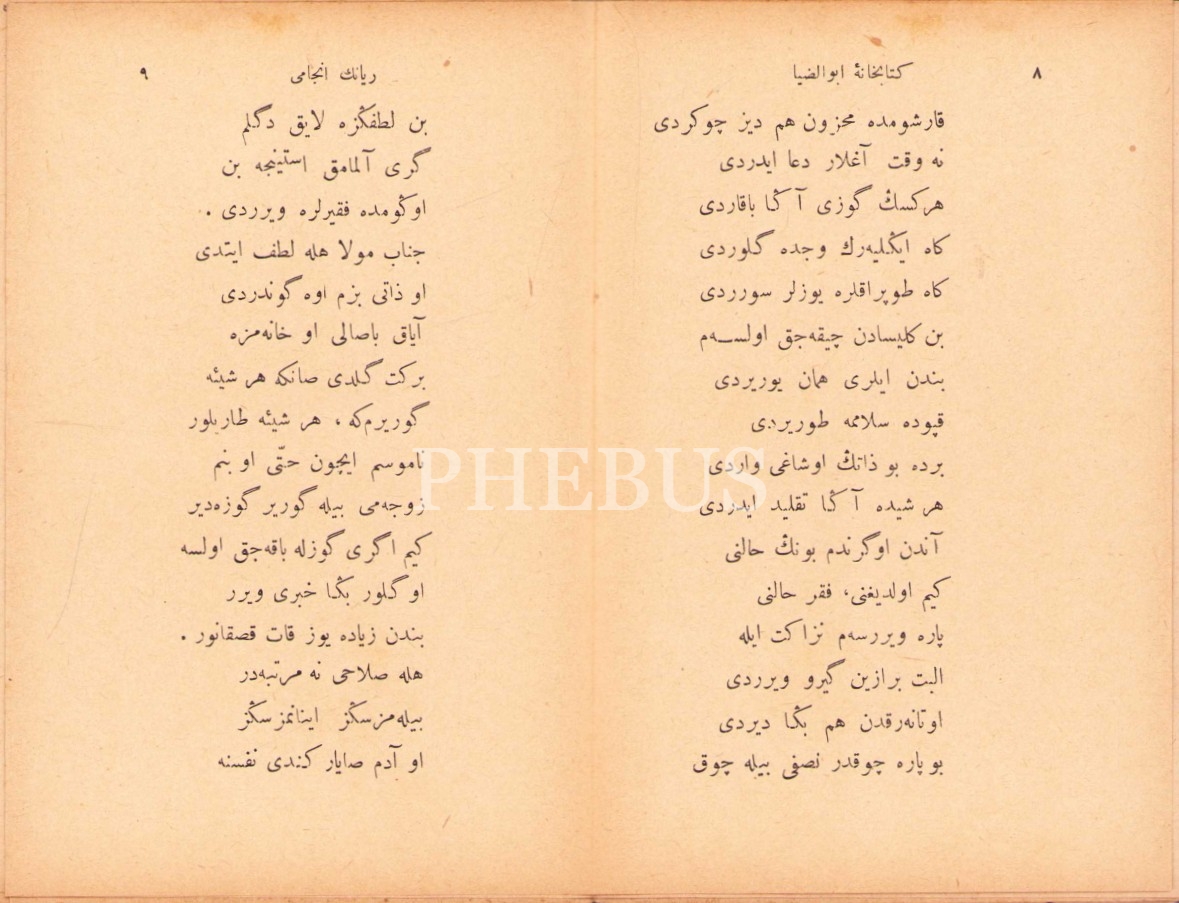 ٨
كتابخانۀ ابوالضيا
قارشومده محزون هم ديز چوكردى
نه وقت آغلار دعا ايدردى
هركسڭ گوزى آڭا باقاردى
كاه ايڭليه‌رك وجده گلوردى
كاه طوپراقلره يوزلر سوردى
بن كليسادن چيقه‌جق اولسه‌م
بندن ايلرى همان يوريردى
قپوده سلامه طوريردى
برده بو ذاتڭ اوشاغى واردى
هر شيده آڭا تقليد ايدردى
آندن اوگرندم بونڭ حالنى
كيم اولديغنى، فقر حالنى
پاره ويررسه‌م نزاكت ايله
البت برازين گيرو ويرردى
اوتانه‌رقدن هم بڭا ديردى
بو پاره چوقدر نصفى بيله چوق
ريانك انجامى
٩
بن لطفڭزه لايق دگلم
گرى آلمامق استينجه بن
اوڭومده فقيرلره ويرردى .
جناب مولا هله لطف ايتدى
او ذاتى بزم اوه گوندردى
آياق باصالى او خانه‌مزه
بركت گلدى صانكه هر شيئه
گوريرم‌كه ، هر شيئه طاريلور
ناموسم ايچون حتّى او بنم
زوجه‌مى بيله گورير گوزه‌دير
كيم اگرى گوزله باقه‌جق اولسه
او گلور بڭا خبرى ويرر
بندن زياده يوز قات قصقانور .
هله صلاحى نه مرتبه‌در
بيله‌مزسڭز اينانمزسڭز
او آدم صايار كندى نفسنه
PHEBUS